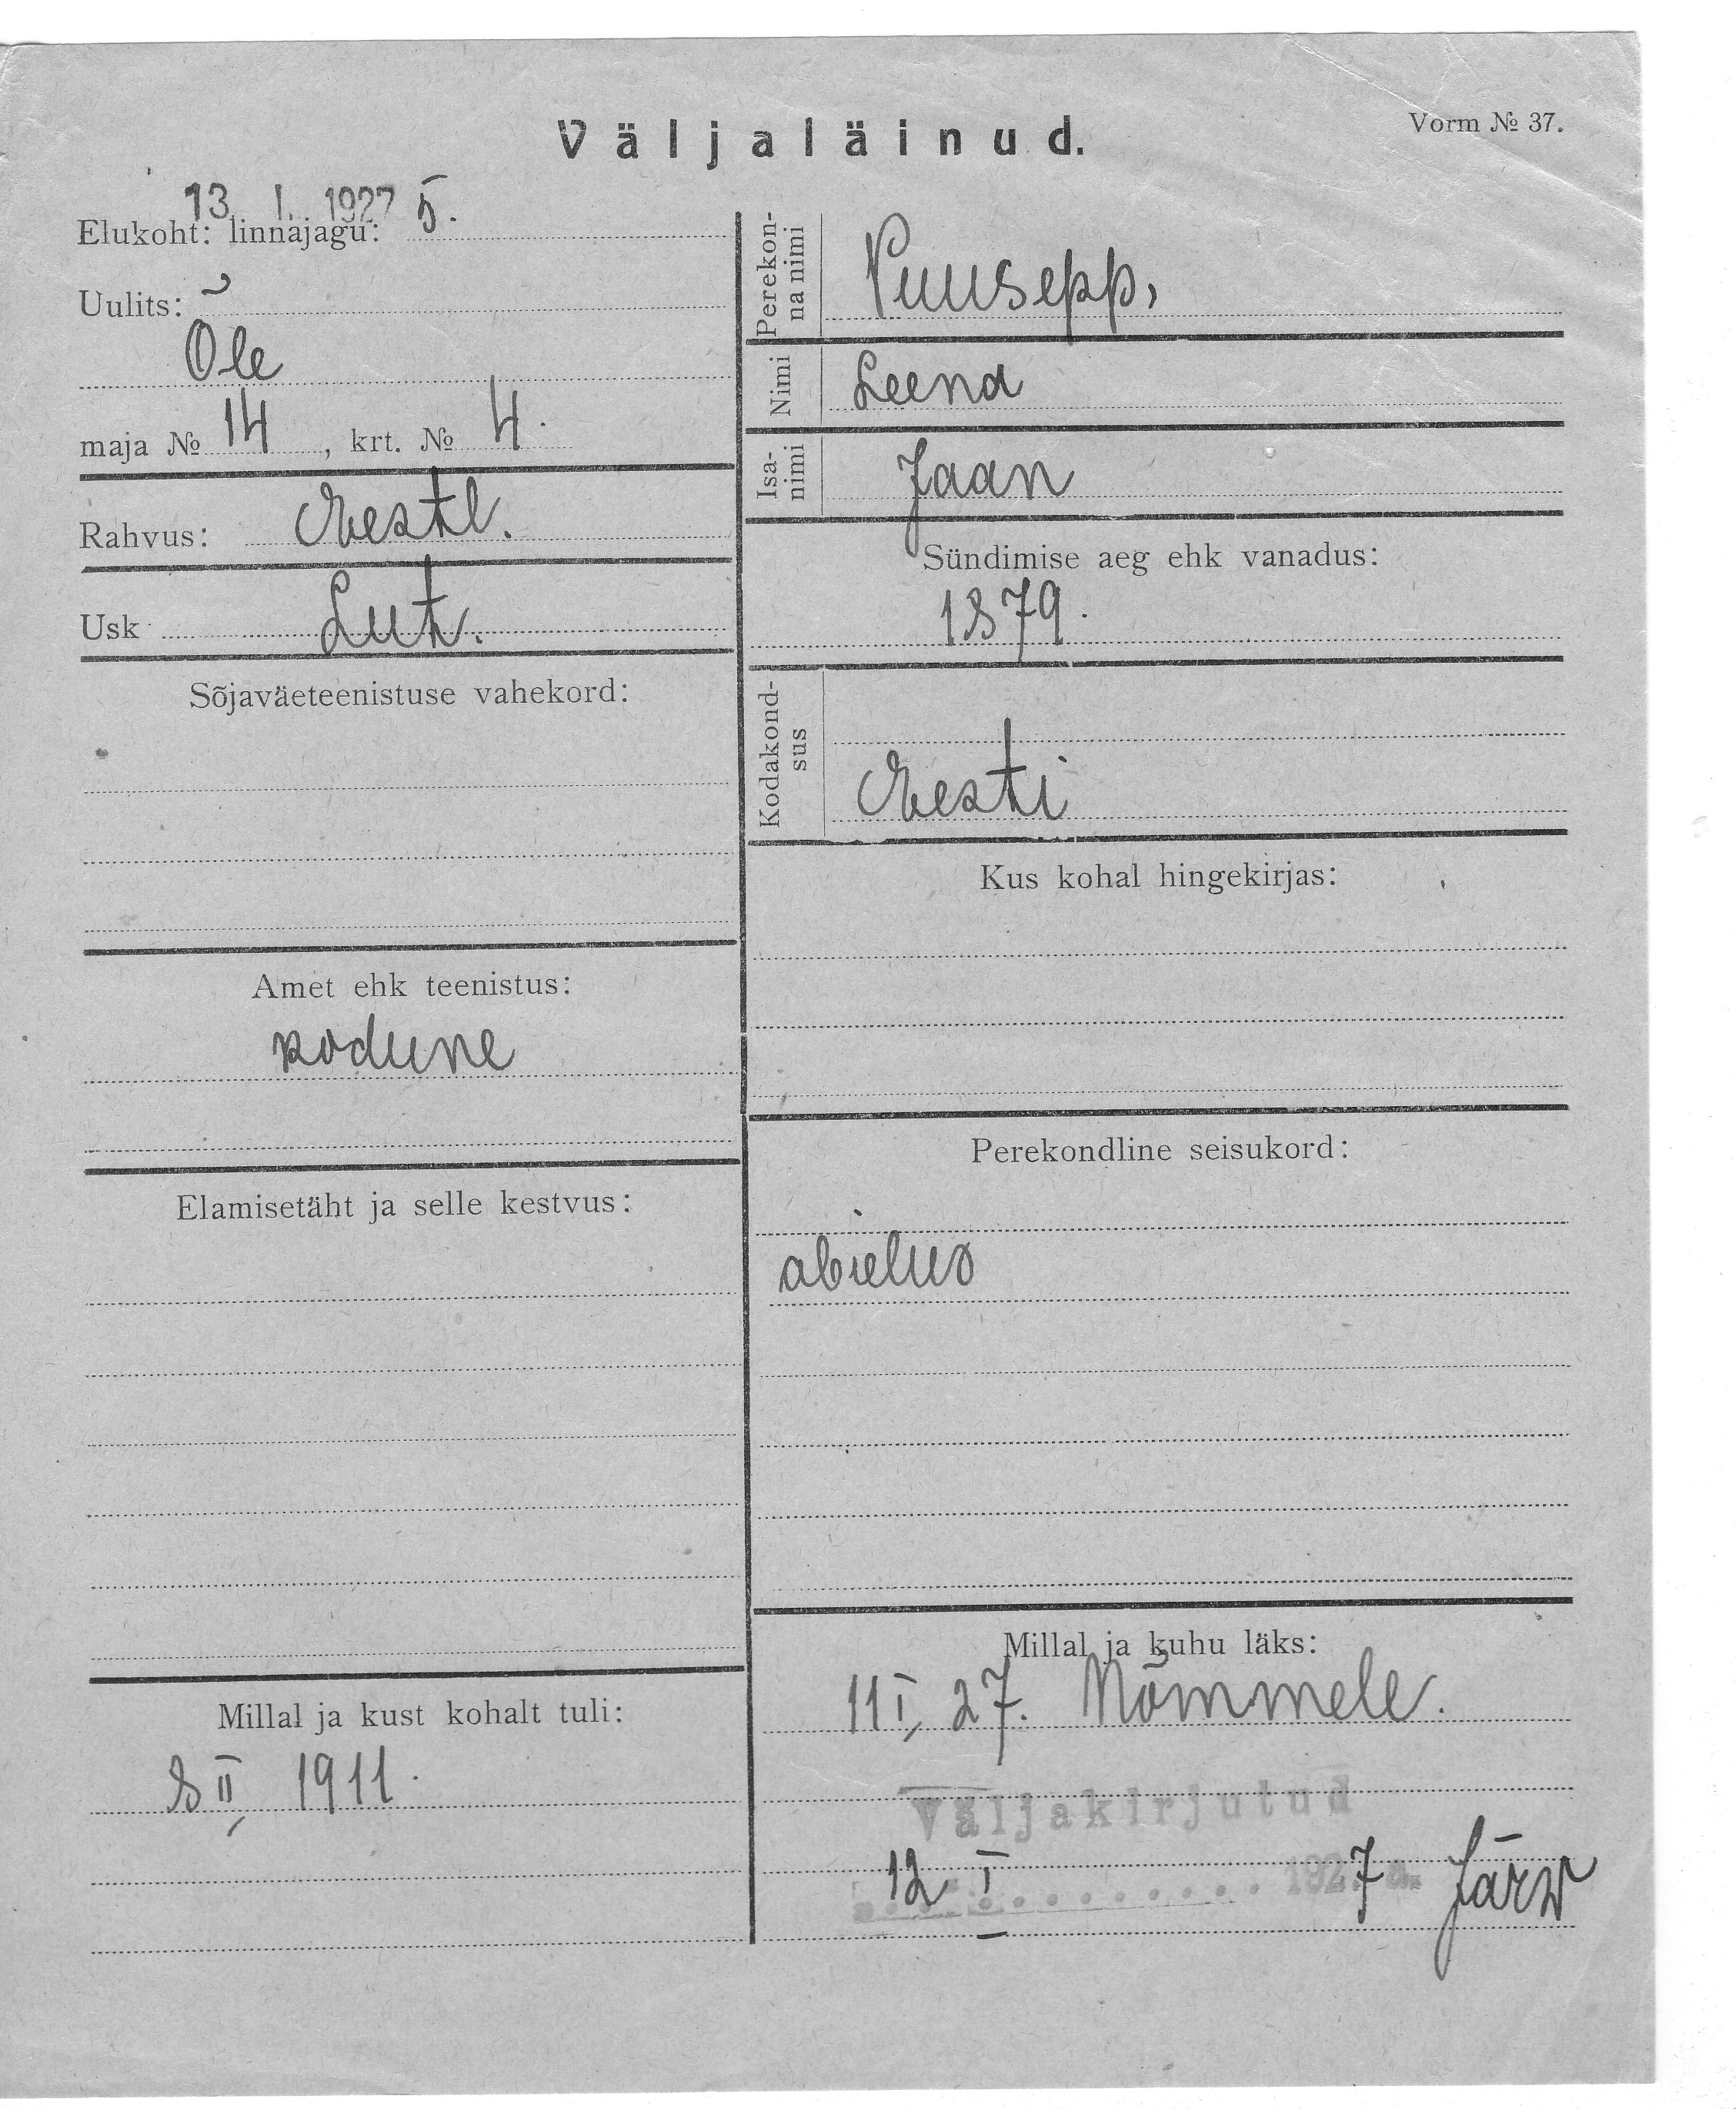 Väljaläinud.
Vorm № 37.
13 I. 1927
Elukoht: linnajagu: 5.
Uulits:
Õle
maja № 14, krt. № 4.
Rahvus: Eestl.
Usk Lut.
Sõjaväeteenistuse vahekord:
Amet ehk teenistus:
kodune
Elamisetäht ja selle kestvus:
Millal ja kust kohalt tuli:
8 II, 1911.
Perekonna nimi Puusepp,
Nimi Leena
Isanimi Jaan
Sündimise aeg ehk vanadus:
1879.
Kodakondsus
Eesti
Kus kohal hingekirjas:
Perekondline seisukord:
abielus
Millal ja kuhu läks:
11 I, 27. Nõmmele.
Väljakirjutud
12 I 1927 a. Järw